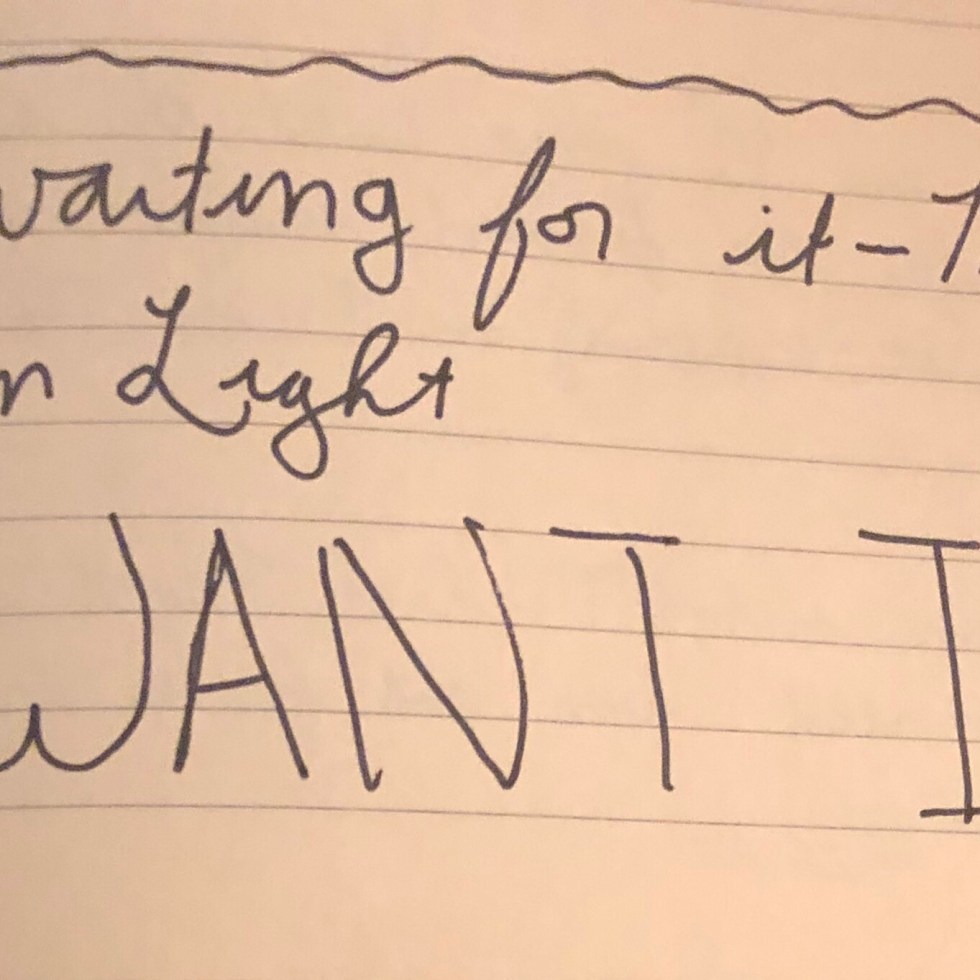 waiting for it -
Light
WANT I